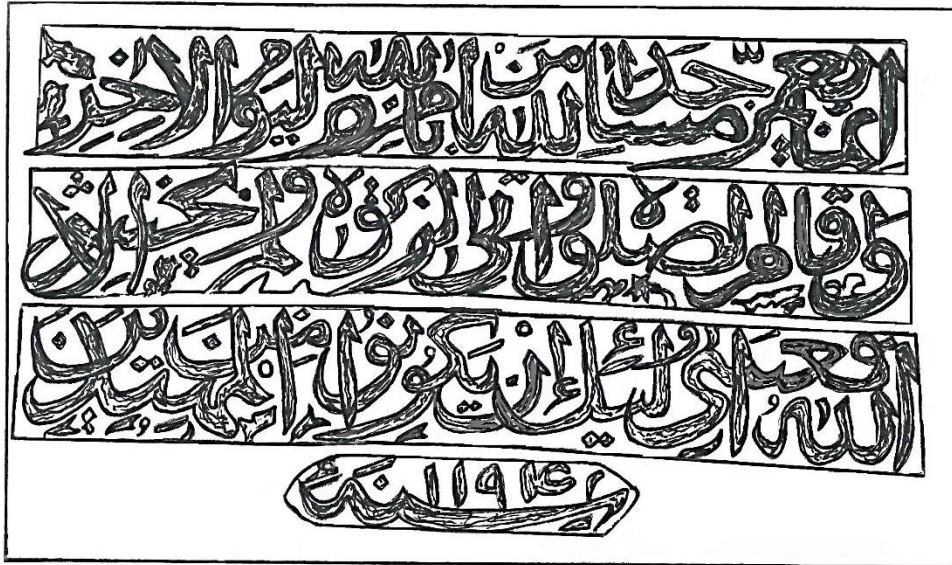 انما يعمر مساجد الله من امن بالله واليوم الاخر
واقام الصلوة واتى الزكوة ولم يخش الا
الله فعسى أولئك أن يكونوا من المهتدين
سنة ١١٩٤